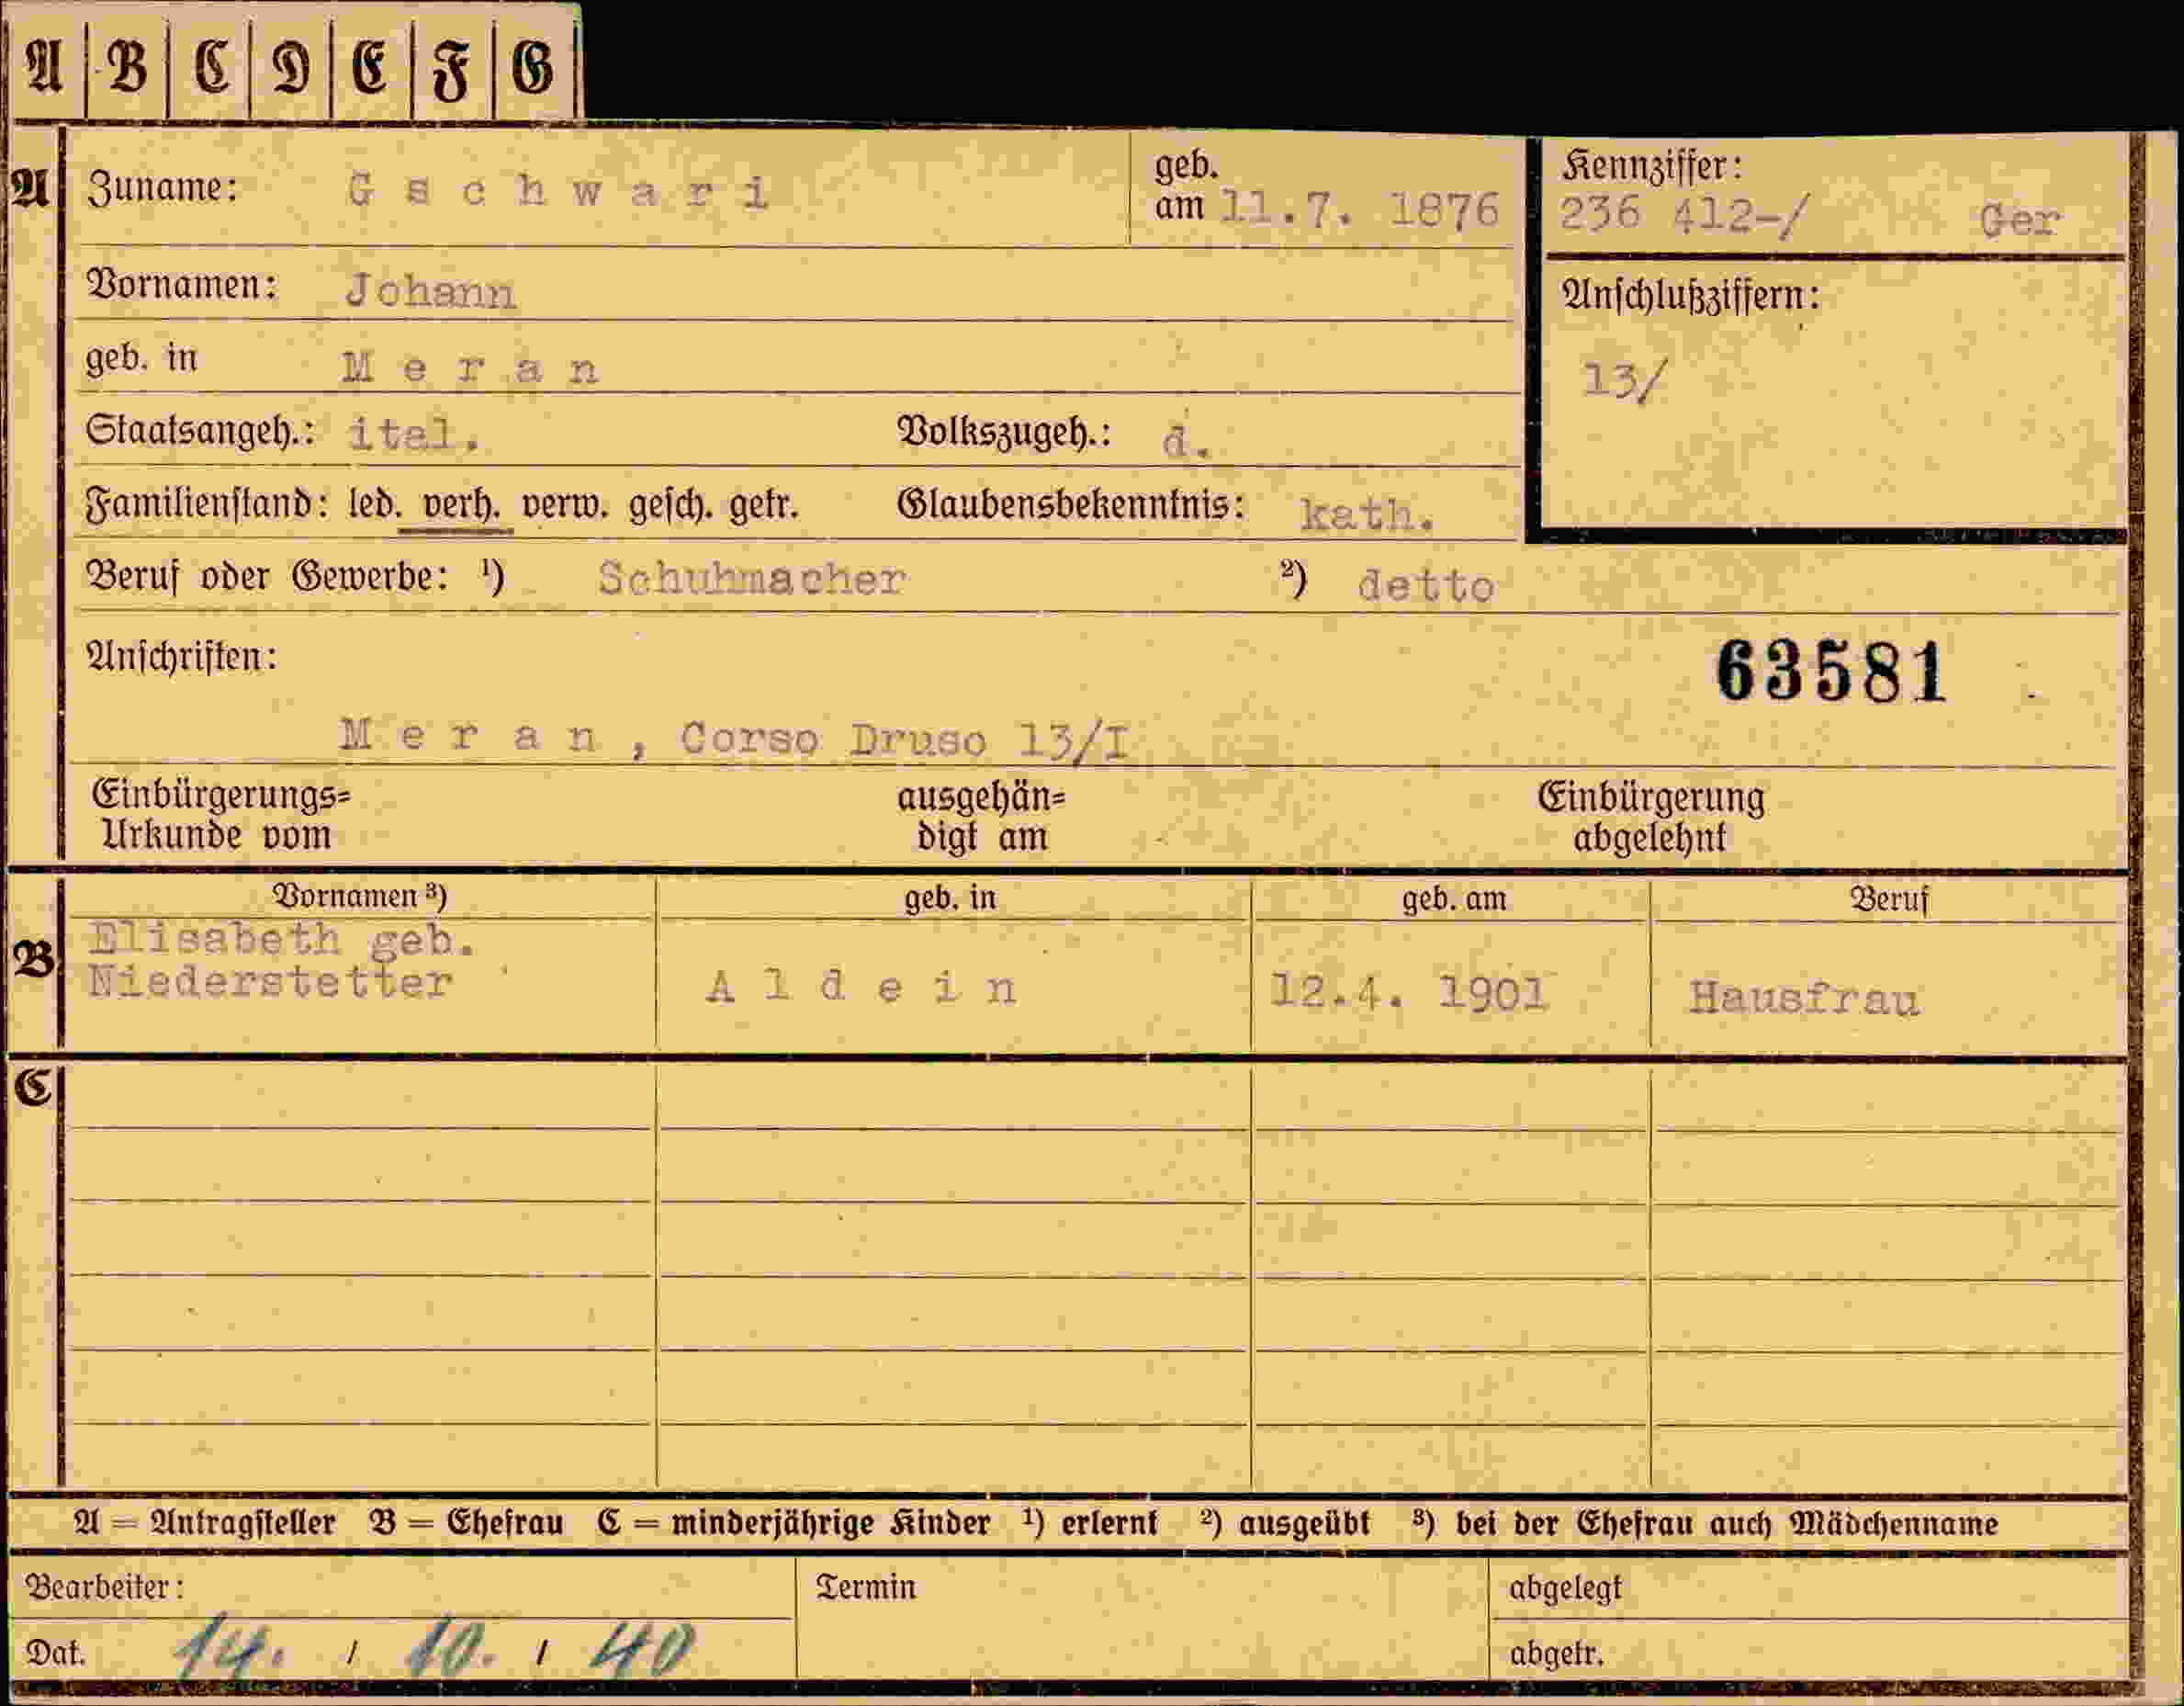 A B C D E F G
A Zuname: Gschwari geb. am 11.7. 1876 Kennziffer: 236 412-/ Ger
Vornamen: Johann Anschlußziffern:
geb. in Meran 13/
Staatsangeh.: ital. Volkszugeh.: d.
Familienstand: led. verh. verw. gesch. getr. Glaubensbekenntnis: kath.
Beruf oder Gewerbe: ¹) Schuhmacher ²) detto
Anschriften: 63581
Meran, Corso Druso 13/I
Einbürgerungs= ausgehän= Einbürgerung
Urkunde vom digt am abgelehnt
Vornamen ³) geb. in geb. am Beruf
B Elisabeth geb.
Niederstetter Aldein 12.4. 1901 Hausfrau
C
A = Antragsteller B = Ehefrau C = minderjährige Kinder ¹) erlernt ²) ausgeübt ³) bei der Ehefrau auch Mädchenname
Bearbeiter: Termin abgelegt
Dat. 14. / 10. / 40 abgetr.